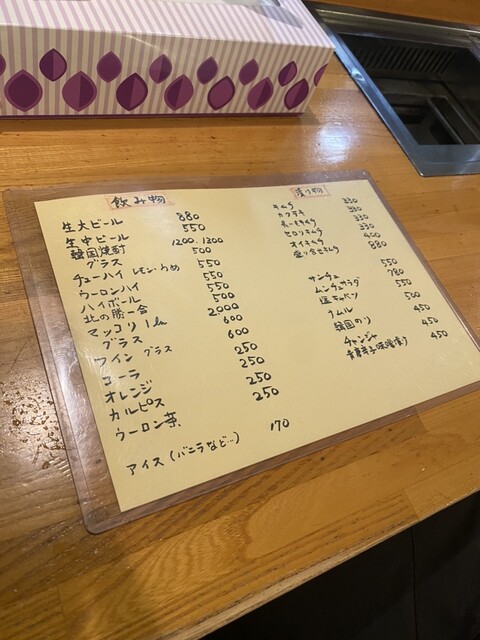 飲み物
生大ビール 880
生中ビール 550
韓国焼酎 1200. 1300
グラス 500
チューハイ レモン・うめ 550
ウーロンハイ 550
ハイボール 550
北の勝一合 500
マッコリ 1L 2000
グラス 600
ワイン グラス 600
コーラ 250
オレンジ 250
カルピス 250
ウーロン茶 250
アイス(バニラなど…) 170
漬け物
キムチ 330
カクテキ 330
330
セロリキムチ 330
オイキムチ 400
盛り合せキムチ 880
サンチュ 550
ムンチュサラダ 780
塩キャベツ 550
ナムル 500
韓国のり 450
チャンジャ 450
青唐辛子味噌漬け 450